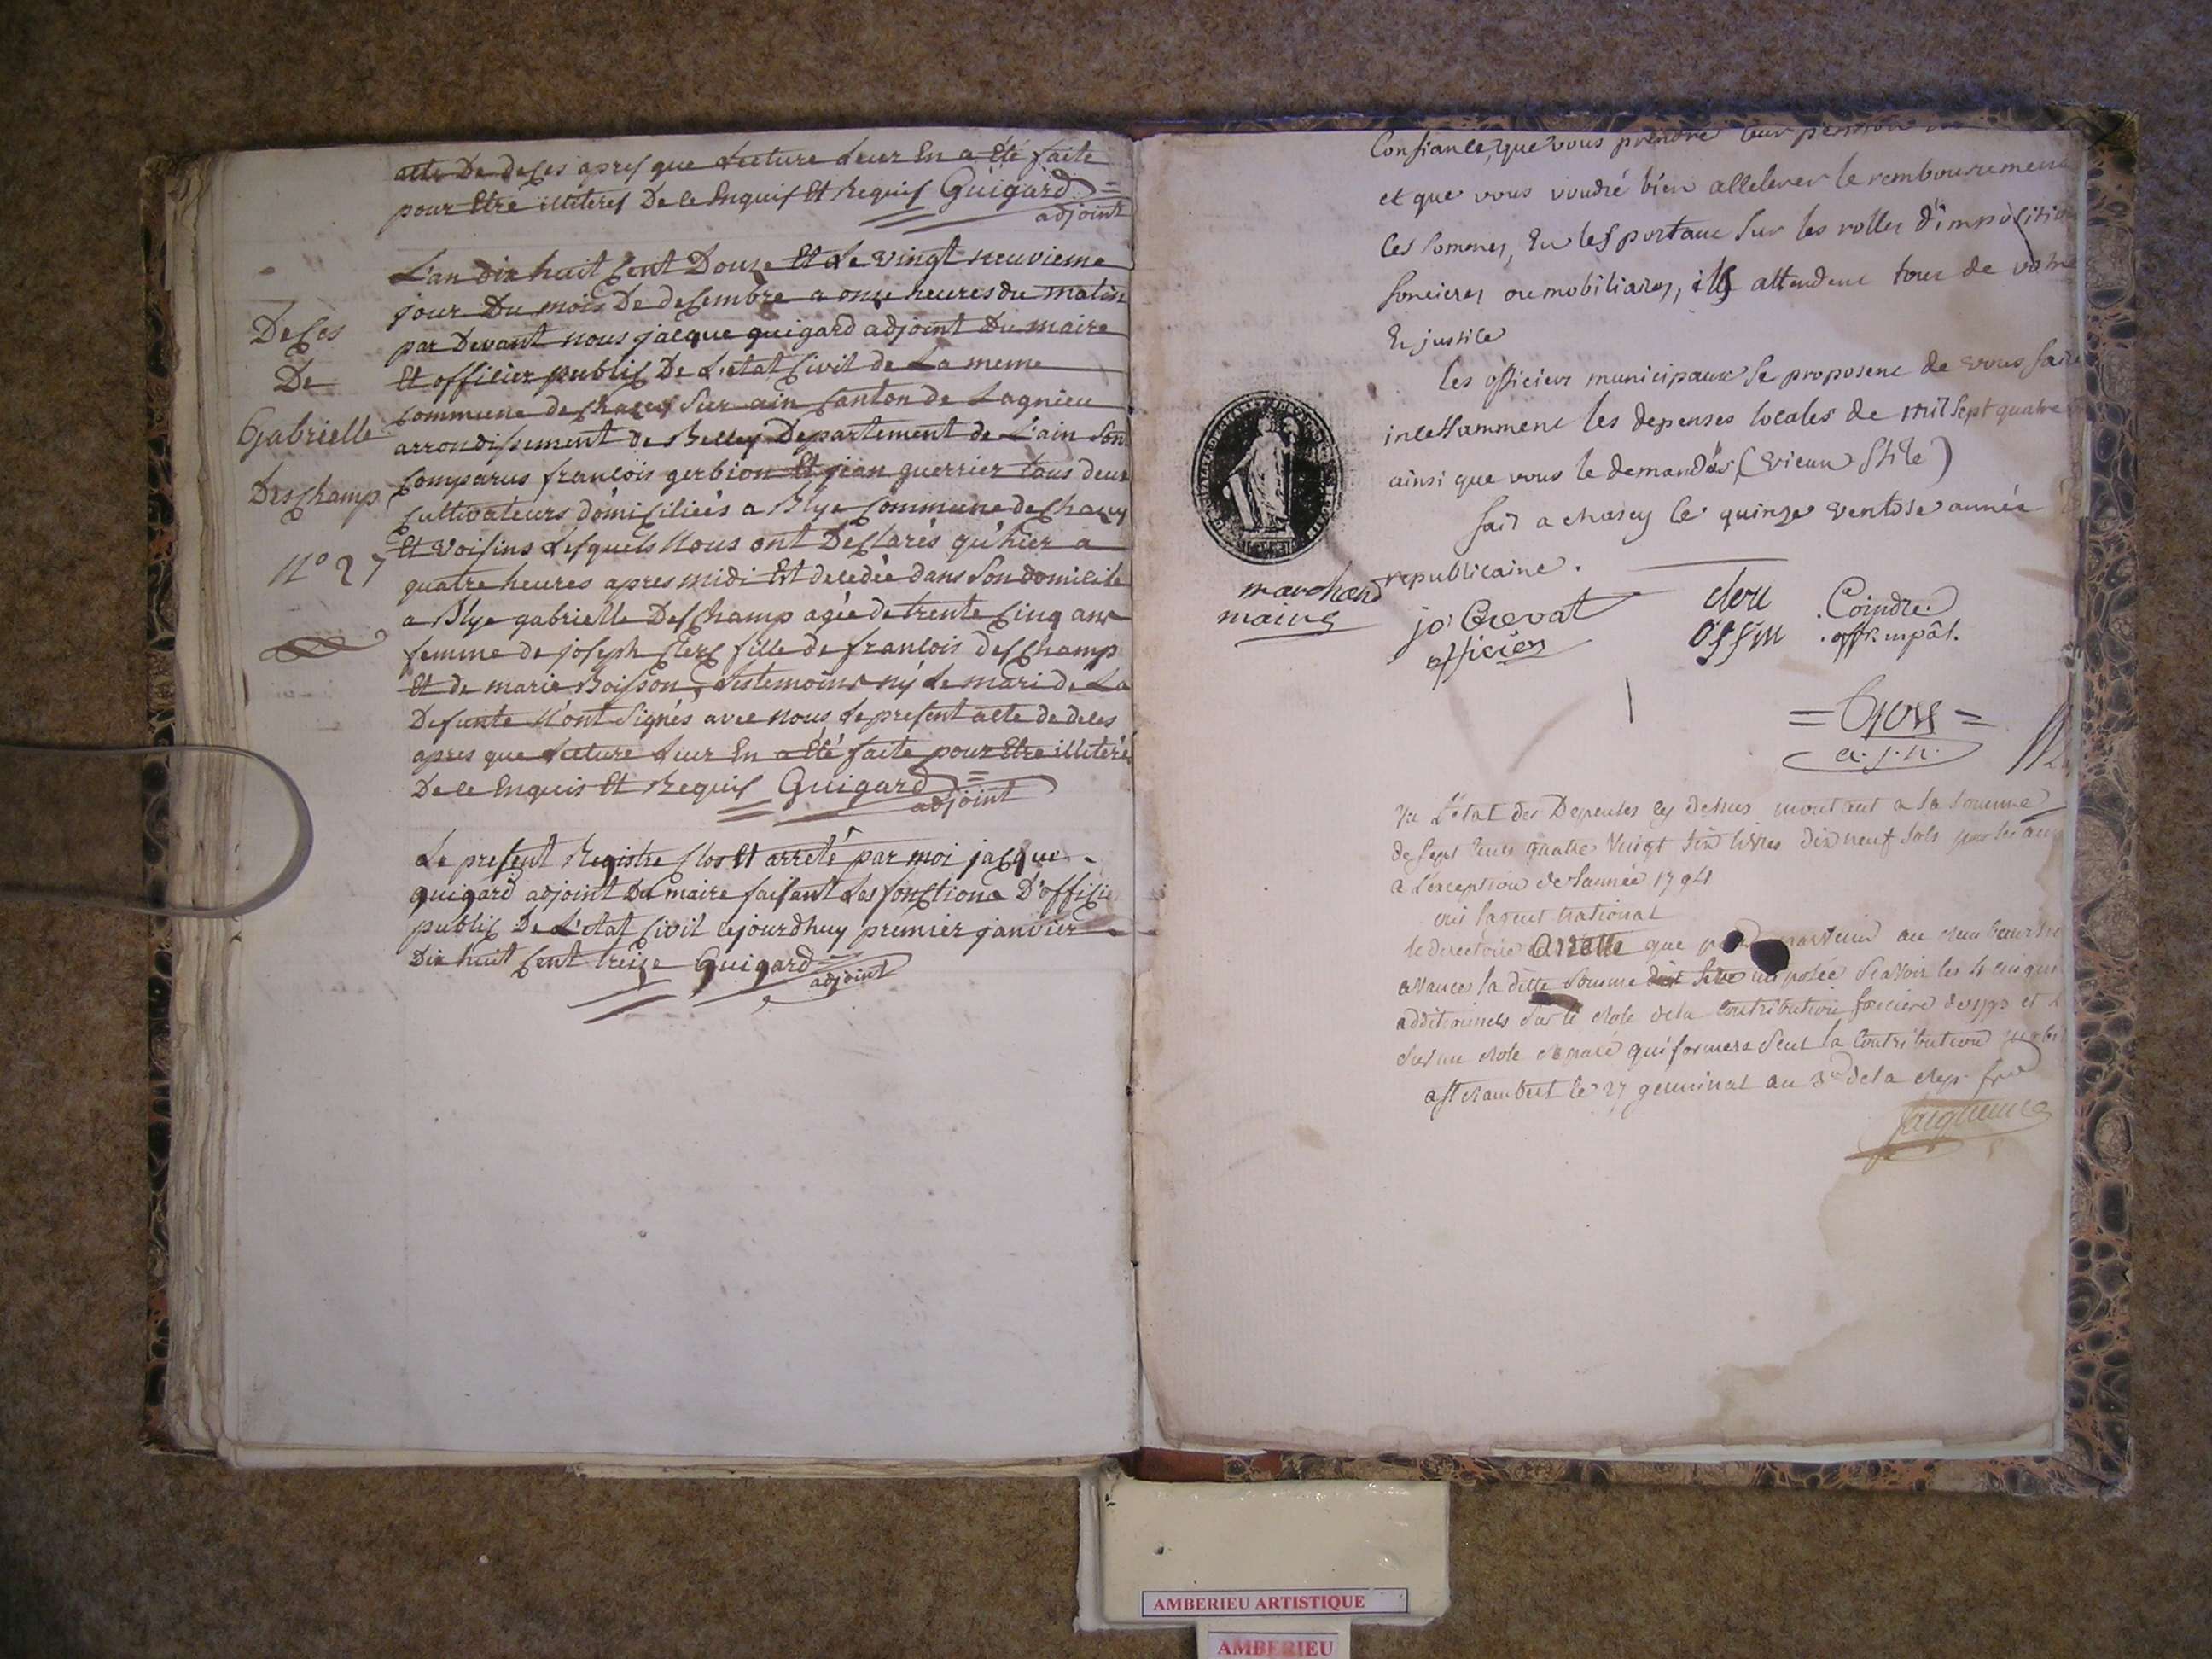 acte De deces apres que Lecture Leur En a Eté faite
pour Etre illiterés De ce Enquis Et Requis Guigard
adjoint
L'an dix huit Cent Douze Et Le vingt neuvieme
jour Du mois De decembre a onze heures du matin
par Devant nous jacque guigard adjoint Du maire
Et officier public De L'etat Civil de La meme
Commune de Chazey Sur ain Canton de Lagnieu
arrondissement de Belley Departement de L'ain Son
Comparus francois gerbion Et jean guerrier tous deux
Cultivateurs domiciliés a Blye Commune de Chazey
Et voisins Lesquels Nous ont Declarés qu'hier a
quatre heures apres midi Est decedée dans Son domicile
a Blye gabrielle Deschamp agée de trente Cinq ans
femme de joseph Clerc fille de francois deschamp
Et de marie Boisson, Les temoins ny Le mari de La
Defunte N'ont Signés avec nous Le present acte de deces
apres que Lecture Leur En a Eté faite pour Etre illiteré
De ce Enquis Et Requis Guigard
adjoint
Deces
De
Gabrielle
Deschamp
N° 27
Le present Registre Clos Et arreté par moi jacque
guigard adjoint Du maire faisant Les fonctions D'offici
public De L'etat Civil cejourdhuy premier janvier
Dix huit Cent treize Guigard
adjoint
Confiance, que vous prendré leur pension
et que vous voudré bien allelever le remboursement
Ces Sommes, En les portant Sur les rolles d'imposition
foncieres ou mobiliaires, ils attendent tous de votre
En justice
Les officiers municipaux Se proposent de vous faire
incessamment les depenses locales de mil Sept quatre
ainsi que vous le demandés (vieux Stile)
fait a chasey le quinze ventose année
republicaine.
marchand
maire
jo. Crevat
officier
clerc
Coindre
= Gros =
a. j. n.
Vu L'etat des Depenses cy dessus montant a la Somme
de Sept Cens quatre Vingt Six livres dix neuf Sols pour les
a L'exception de l'année 1794
oui lagent national
le directoire Arrette que
avances la ditte Somme imposée Scavoir les
additionnels Sur le Role de la Contribution fonciere de 1793 et
Sur un Role Separé qui formera Seul la Contribution
a St Rambert le 27 germinal an 3e de la Rep. frse